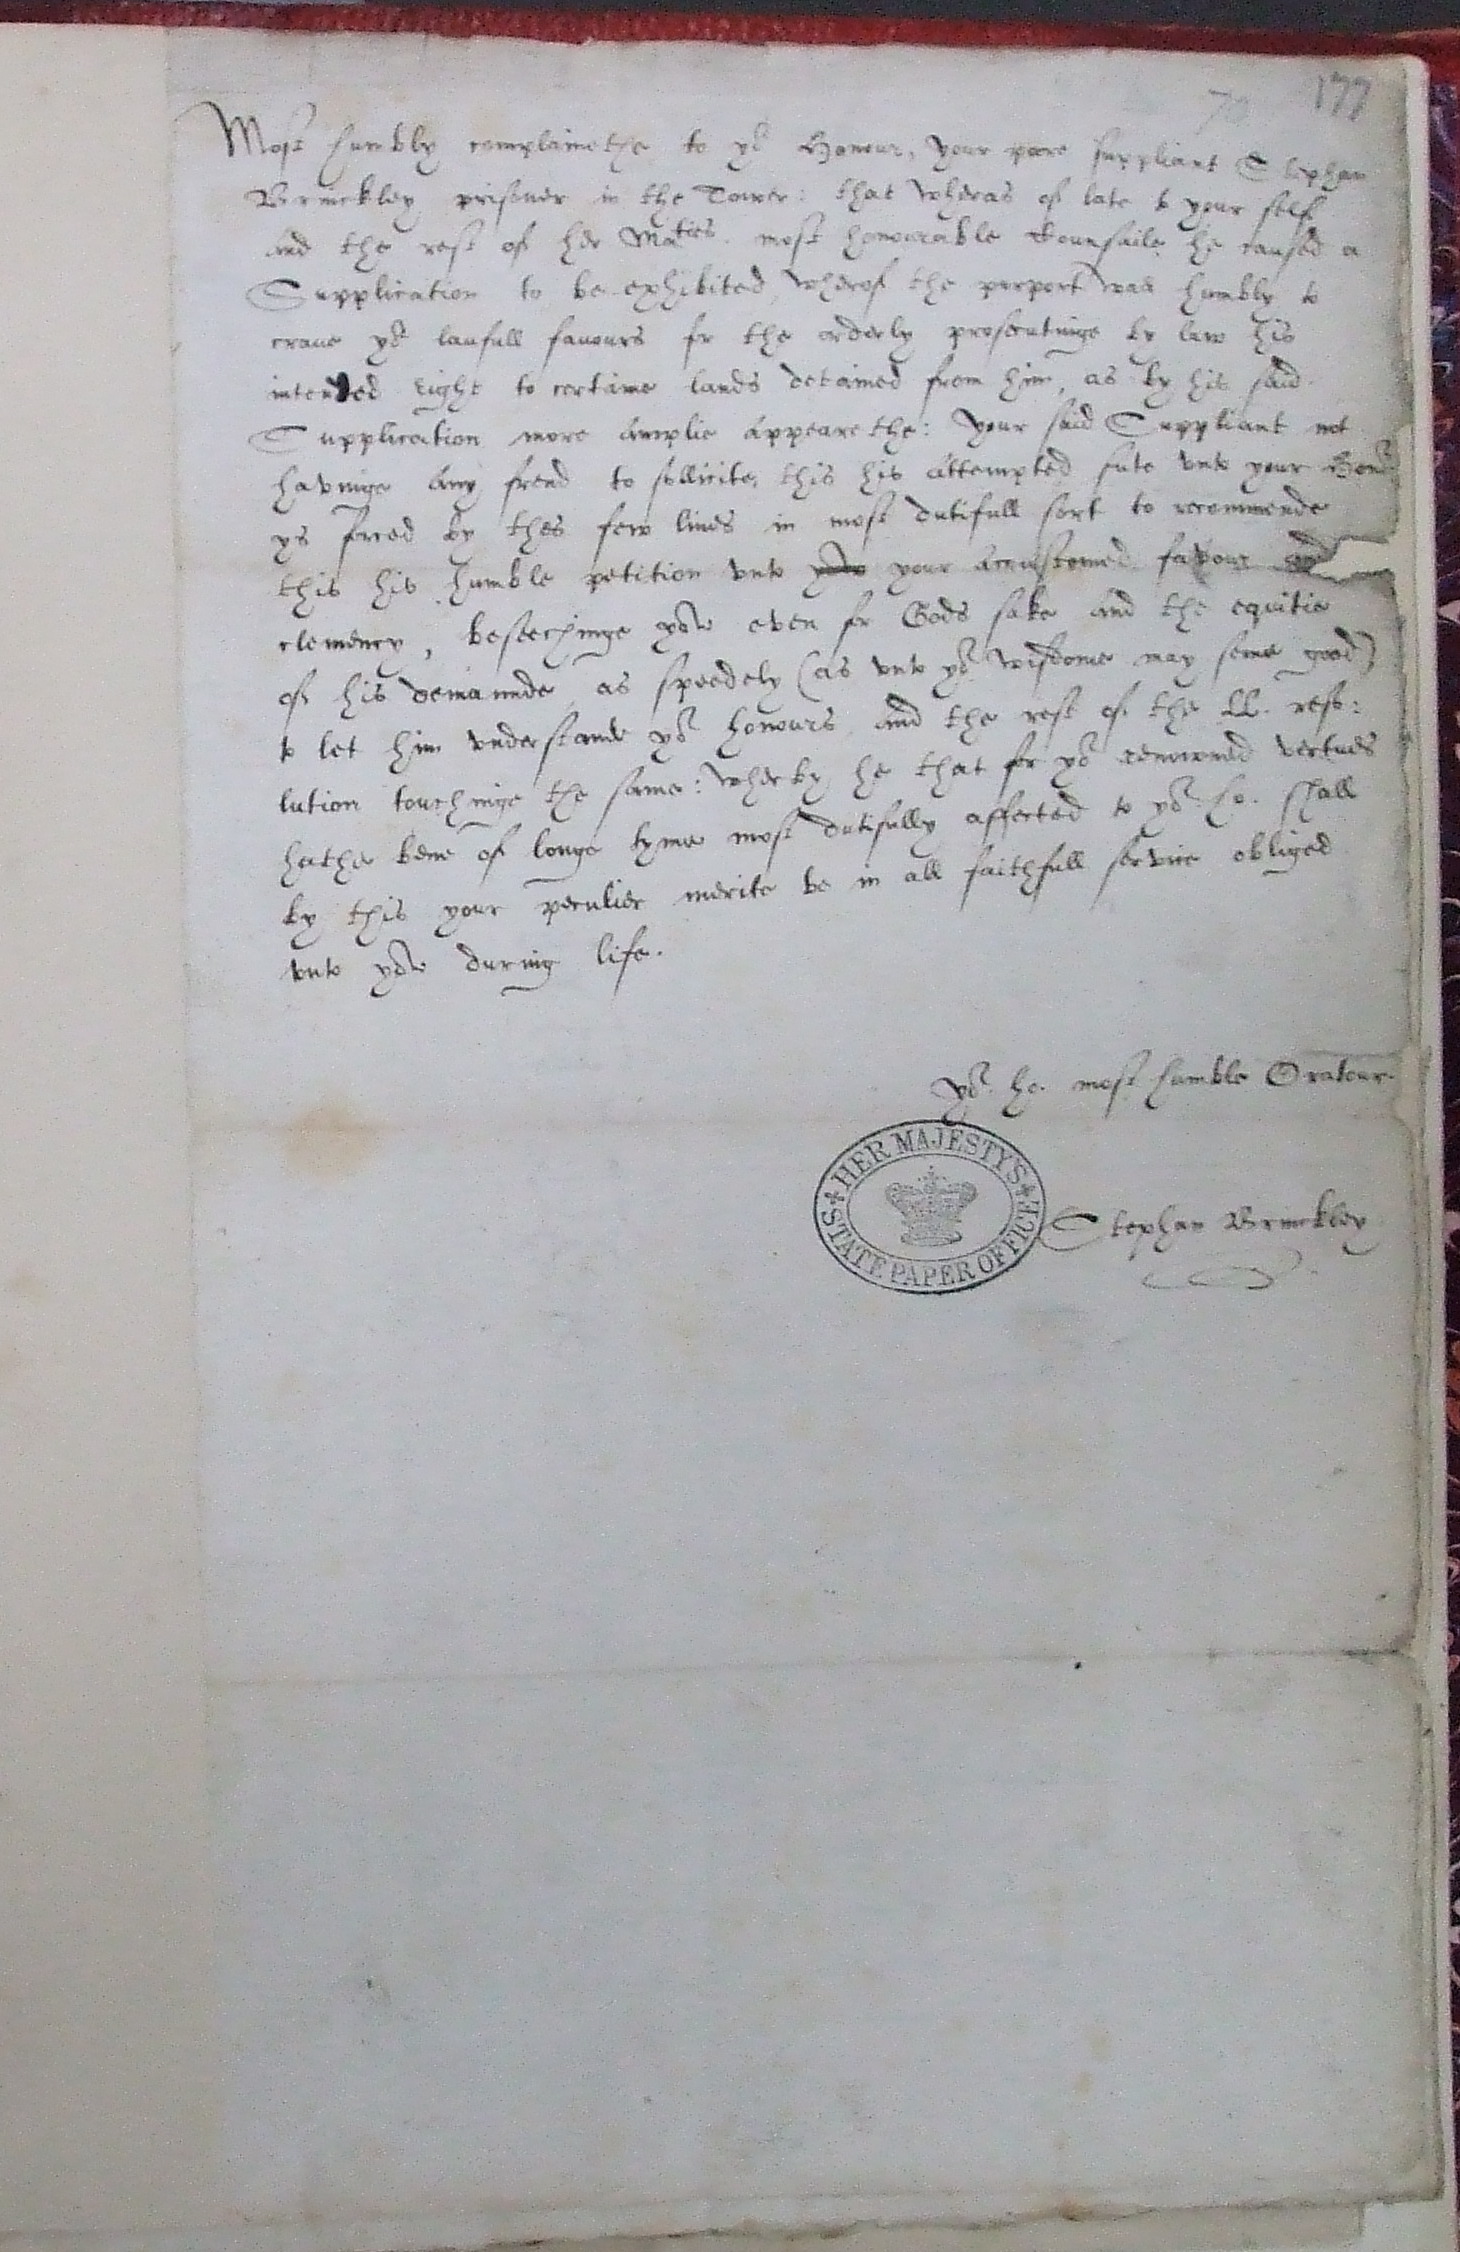 70 177
Most humbly complainethe to yor Honour, your pore suppliant Stephan
Brinckley prisoner in the Tower: that wheras of late to your self
and the rest of her Maties most honourable Counsaile he caused a
Supplication to be exhibited, wherof the purport was humbly to
crave yor laufull favours for the orderly prosecutinge by law his
intended right to certaine lands detained from him, as by his said
Supplication more amplie appearethe: your said Suppliant not
havinge any frend to sollicite this his attempted sute unto your Honor
ys forced by thes few lines in most dutifull sort to recommende
this his humble petition unto your accustomed favour and
clemency, beseechinge yow even for Gods sake and the equitie
of his demaunde, as speedely (as unto yor wisdome may seme good)
to let him understande yor honours and the rest of the LL. reso:
lution touchinge the same: wherby he that for yor renowned vertues
hathe bene of longe tyme most dutifully affected to yor ho. shall
by this your peculier merite be in all faithfull service obliged
unto yow during life.
Yor. ho. most humble Oratour.
HER MAJESTY'S
STATE PAPER OFFICE
Stephan Brinckley